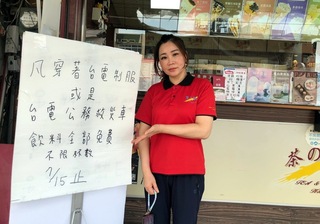 凡穿著台電制服
或是
台電公務救災車
飲料全部免費
不限杯數
7/15止
茶の